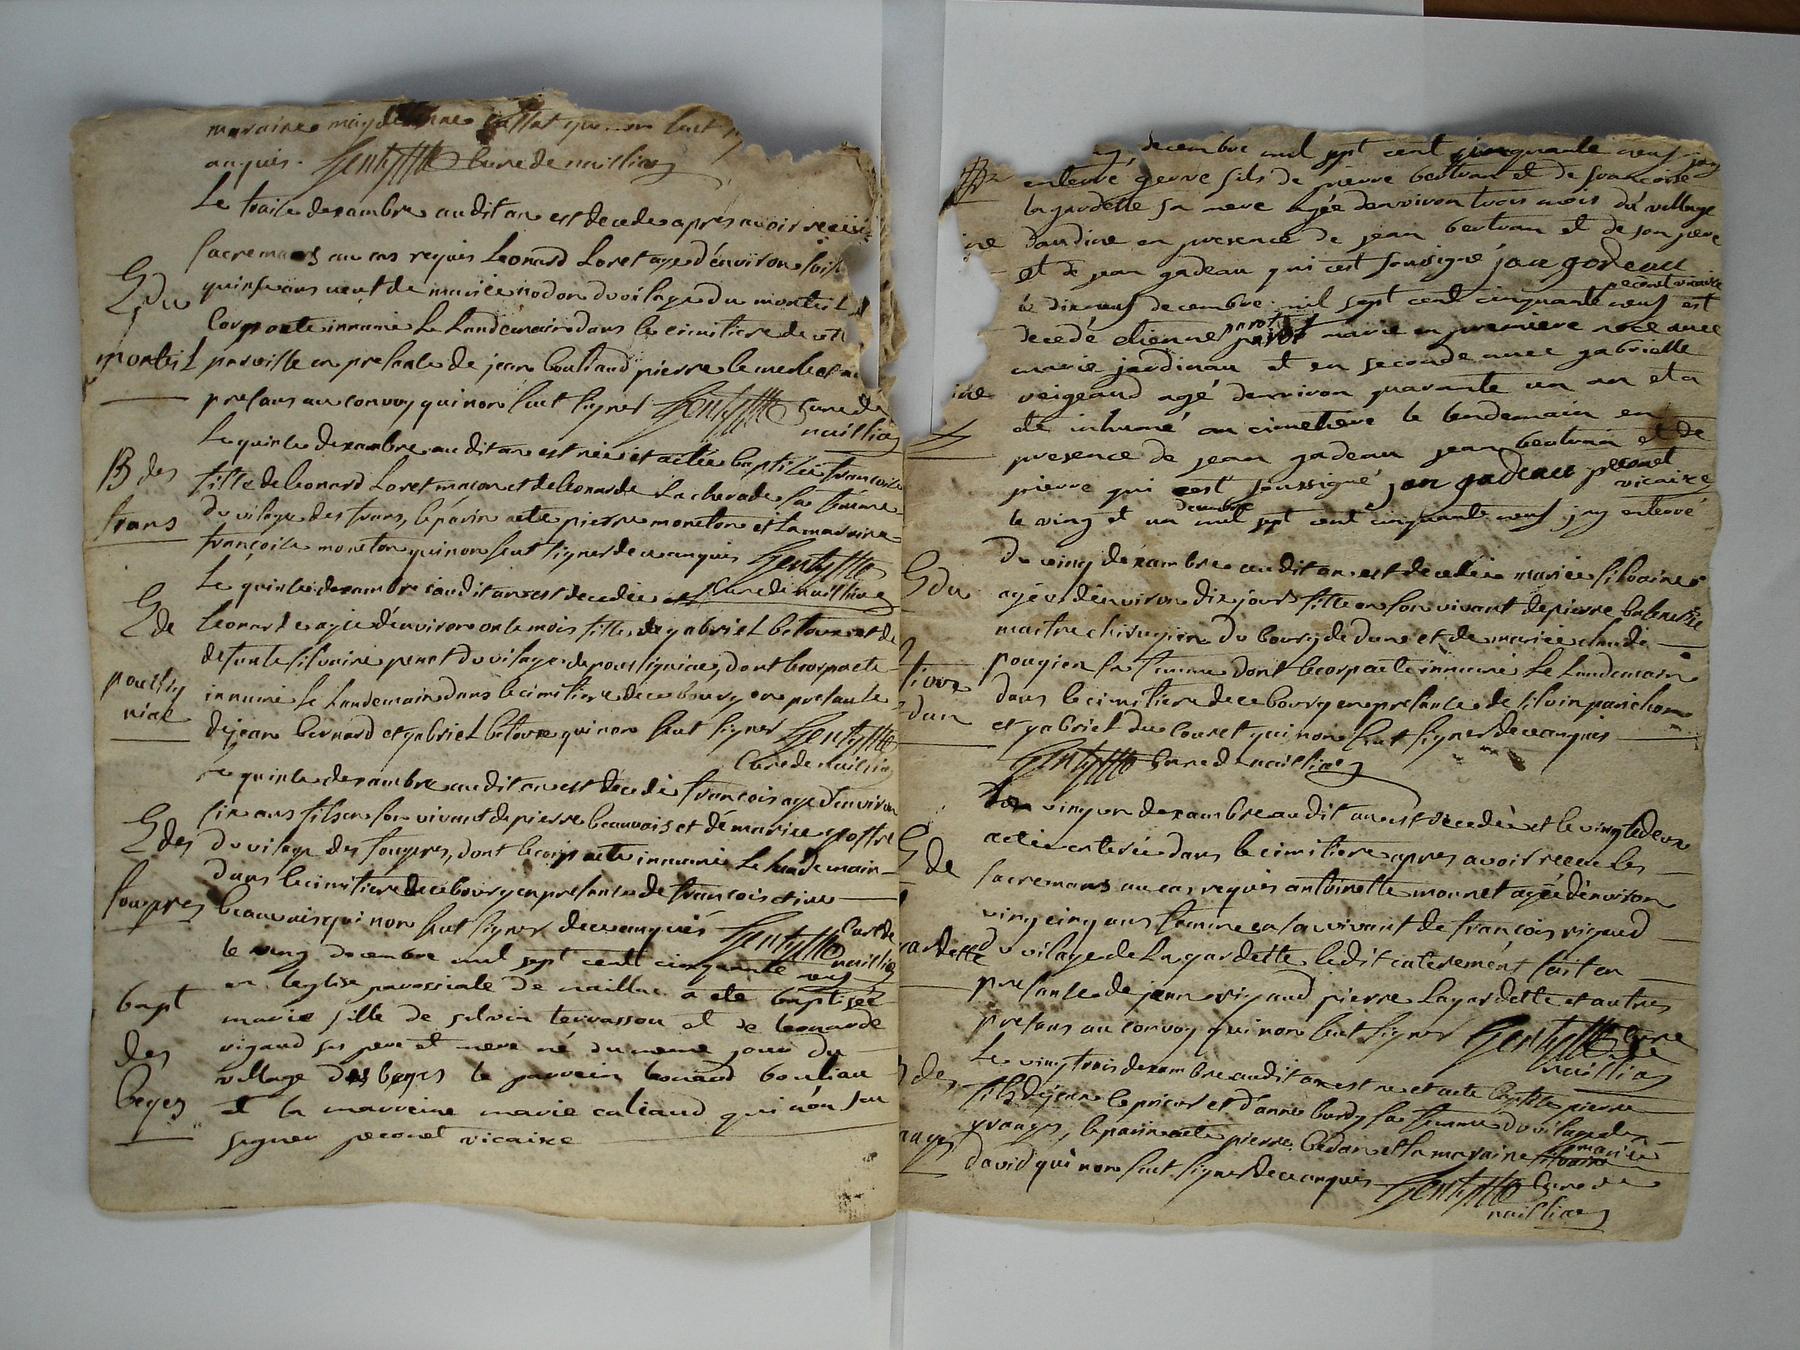 maraine magdelenne qui non Sut
anquis. Gentyffto Cure de naillias
Le traile dexambre audit an est decede apres avoir receu
Sacremans au cas requis Leonard Loret age d'environ
E du
quinse ans veuf de marie nodon du vilage du monteil
Corp a ete innumé Le Landemain dans le cimitiere de
monteil
paroille en presance de jean boutaud pierre le
presans au convoy qui non Sut Signer Gentyffto Cure de
naillias
Le quinse dexambre audit an est née et a etée baptisée francoise
B des
fille de leonard Loret maçon et de leonarde Lacherade Sa famme
trans
du vilage des trans, le parin a ete pierre moneton et la maraine
francoise moneton qui non Sut Signer de ce anquis Gentyffto
Cure de naillias
Le quinse dexambre audit an est decedée
E de
Leonarde agée d'environ onse mois fille de gabriel betoux et de
defunte Silvaine penot du vilage de poussigniae, dont le corp a ete
poussig
niae
innumé Le Landemain dans le cimitiere de ce bourg en presance
de jean bernard et gabriel betoux qui non Sut Signer Gentyffto
Cure de naillias
Le quinse dexambre audit an est decedé francois age d'environ
Six ans fils en Son vivant de pierre beauvais et de marie
E des
du vilage des fougeres, dont le corp a ete innumé Le Landemain
dans le cimitiere de ce bourg en presance de francois
fougeres
beauvais qui non Sut Signer de ce anquis Gentyffto Cure de
naillias
le ving decembre mil sept cent cinquante neuf
en leglise parossiale de naillac a ete baptisée
bapt
marie fille de silvin terrasson et de leonarde
rigaud ses pere et mere né du meme jour du
des
village des beges le parrein leonard bouliau
beges
et la marreine marie caliaud qui non seu
signer peconet vicaire
decembre mil sept cent cinquante neuf jay
enterré fils de pierre bertran et de francoise
lagardette sa mere agée denviron trois mois du village
daudine en presence de jean bertran et de son pere
et de jean gadeau qui cest soussigné jan godeau
peconet vicaire
le dix neuf decembre mil sept cent cinquante neuf est
decedé etienne parot marie en premiere noce avec
marie jardinau et en seconde avec gabrielle
veigeaud agé denviron quarante un an et a
été inhumé au cimetiere le lendemain en
presence de jean gadeau jean bertrain et de
pierre qui cest soussigné jan gadeau peconet
vicaire
le ving et un decembre mil sept cent cinquante neuf jay enterré
Du ving dexambre audit an est decedée marie Silvaine
E du
agée d'environ dix jours fille en Son vivant de pierre
maitre chirugien du bourg de dune et de marie
pougien Sa famme dont le corp a ete innumé Le Landemain
dans le cimitiere de ce bourg en presance de Silvin parichon
dun
et gabriel du Couret qui non Sut Signer de ce anquis
Gentyffto Cure de naillias
vingun dexambre audit an est decedée et le vingtedeux
a etée enterée dans le cimitiere apres avoir receu les
E de
Sacremans au cas requis antoinette mounet agée d'environ
ving cinq ans famme en Son vivant de francois rigaud
gardette
du vilage de Lagardette ledit enterement fait en
presance de jean rigaud pierre Lagardette et autres
presans au convoy qui non Sut Signer Gentyffto Cure
de
naillias
Le vingtrois dexambre audit an est ne et a ete baptise pierre
des
fils de jean leprieur et d'anne burdy Sa famme du vilage des
granges, le parin a ete pierre bedan et la maraine marie
david qui non Sut Signer de ce anquis Gentyffto Cure de
naillias